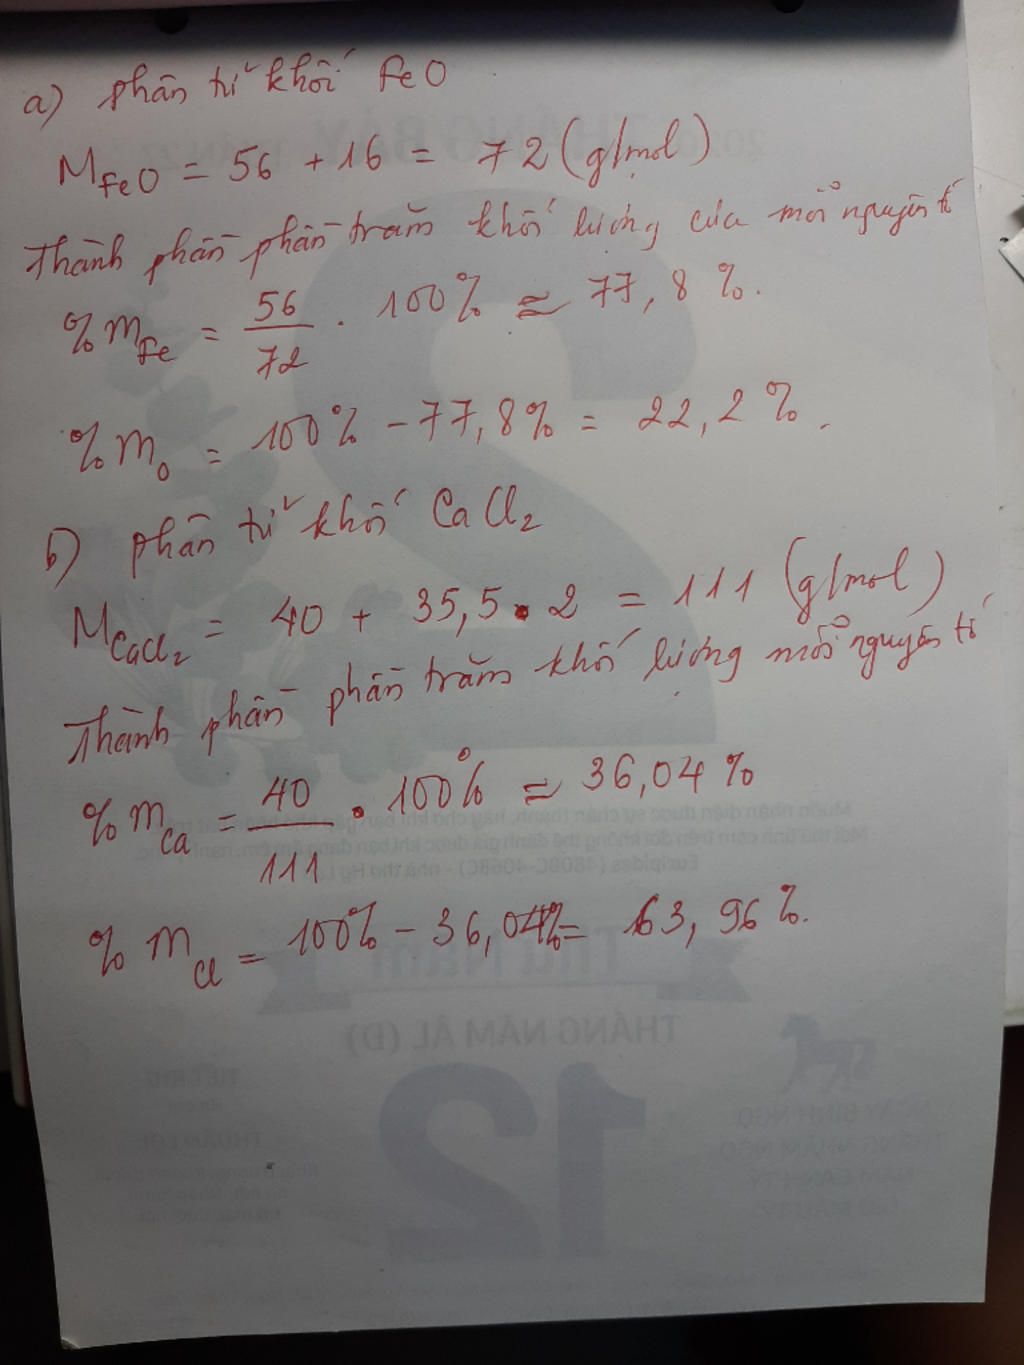 a) phân tử khối FeO
M FeO = 56 + 16 = 72 (g/mol)
Thành phần phần trăm khối lượng của mỗi nguyên tố
% m Fe = 56/72 . 100% ≈ 77,8 %.
% m O = 100% - 77,8% = 22,2 %.
b) phân tử khối CaCl2
M CaCl2 = 40 + 35,5 . 2 = 111 (g/mol)
Thành phần phần trăm khối lượng mỗi nguyên tố
% m Ca = 40/111 . 100% ≈ 36,04 %
% m Cl = 100% - 36,04% = 63,96 %.
Thứ Năm
THÁNG NĂM ÂL (Đ)
12